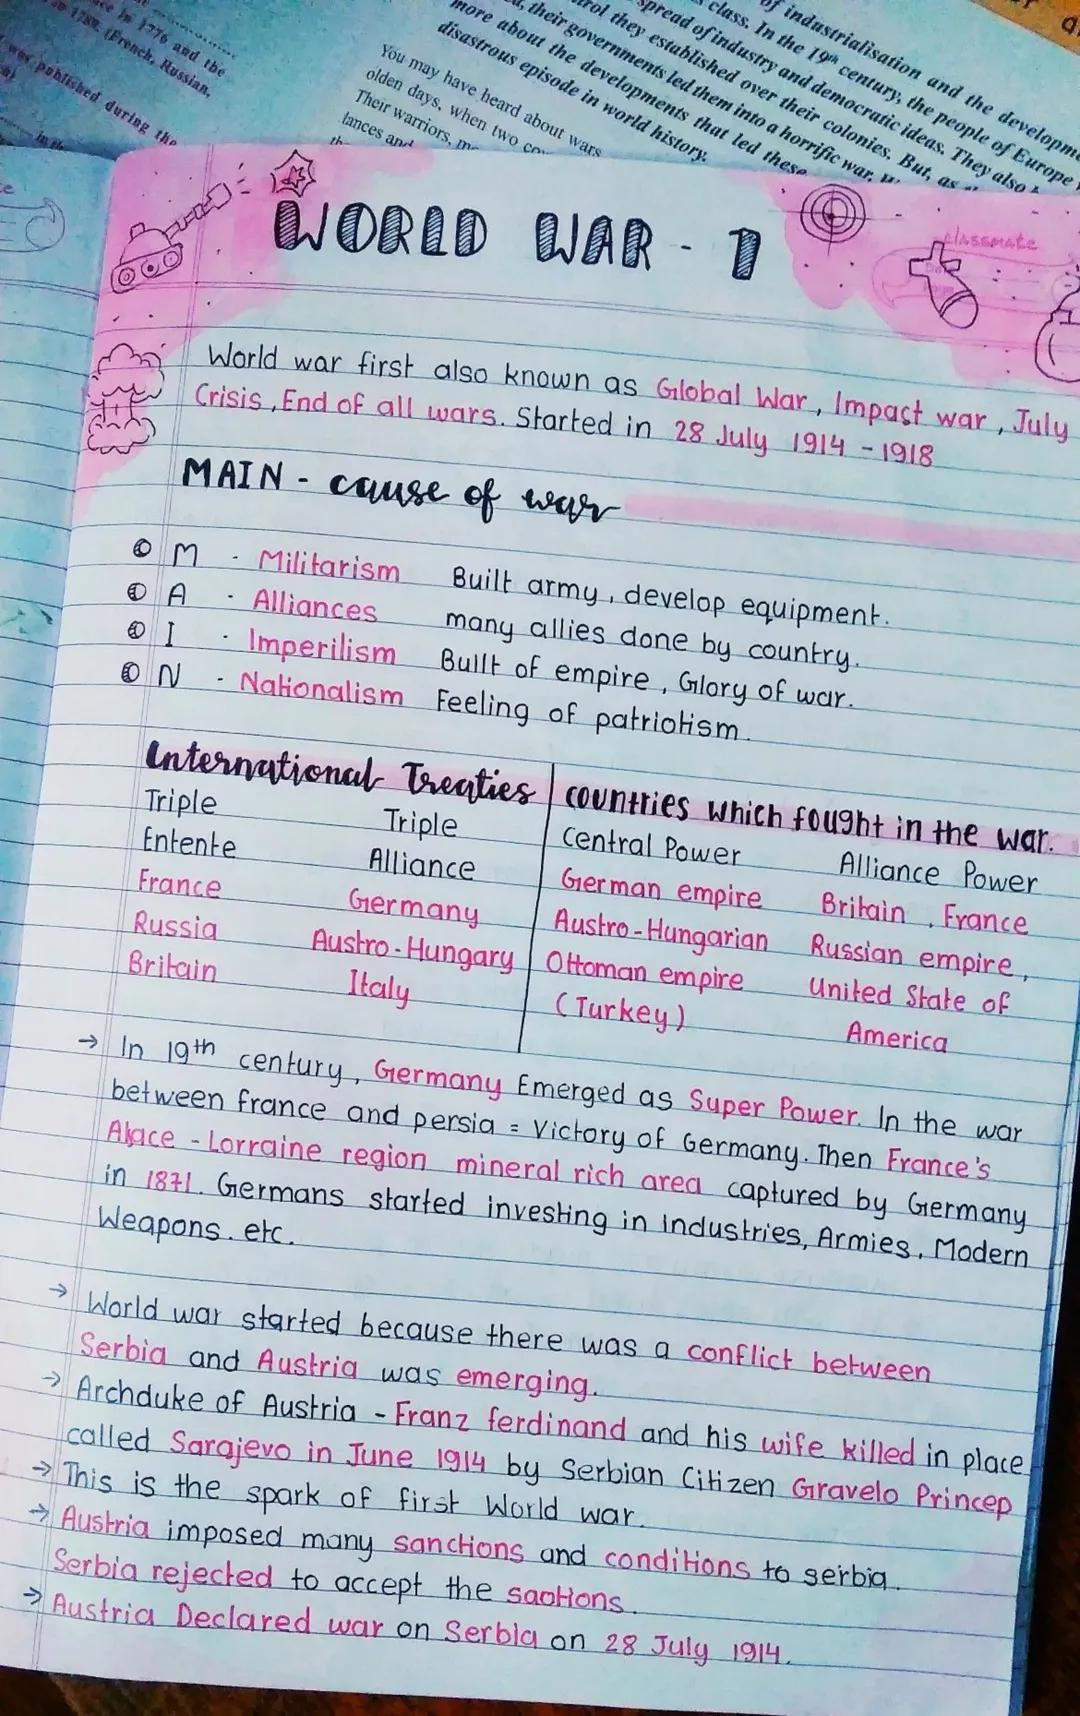 ce in 1776 and the
in 1789. (French, Russian,
was published during the
in th
of industrialisation and the developme
class. In the 19th century, the people of Europe
spread of industry and democratic ideas. They also
rol they established over their colonies. But, as
, their governments led them into a horrific war.
more about the developments that led these
disastrous episode in world history.
You may have heard about wars
olden days, when two
Their warriors,
lances and
WORLD WAR - 1
classmate
World war first also known as Global War, Impact war, July
Crisis, End of all wars. Started in 28 July 1914 - 1918
MAIN - cause of war
M - Militarism Built army, develop equipment.
A - Alliances many allies done by country.
I - Imperilism Built of empire, Glory of war.
N - Nationalism Feeling of patriotism.
International Treaties | countries which fought in the war.
Triple Triple Central Power Alliance Power
Entente Alliance German empire Britain, France
France Germany Austro-Hungarian Russian empire,
Russia Austro-Hungary Ottoman empire United State of
Britain Italy (Turkey) America
→ In 19th century, Germany Emerged as Super Power. In the war
between france and persia = Victory of Germany. Then France's
Alace - Lorraine region mineral rich area captured by Germany
in 1871. Germans started investing in industries, Armies, Modern
Weapons. etc.
→ World war started because there was a conflict between
Serbia and Austria was emerging.
→ Archduke of Austria - Franz ferdinand and his wife killed in place
called Sarajevo in June 1914 by Serbian Citizen Gravelo Princep
→ This is the spark of first World war.
→ Austria imposed many sanctions and conditions to serbia.
Serbia rejected to accept the saotions.
→ Austria Declared war on Serbia on 28 July 1914.